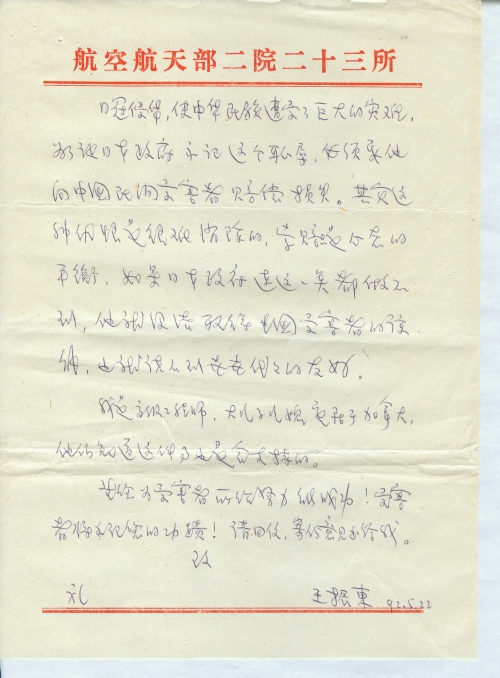 航空航天部二院二十三所
日寇侵华，使中华民族遭受了巨大的灾难，
日本政府 记这个耻辱，必须要他
向中国民间受害者赔偿损失。其实这
种仇恨是很难消除的，索赔是公道的
平衡，如果日本政府连这一点都做不
到，他就没法取得中国受害者的谅
解，也就谈不到世世代代的友好。
我是高级工程师，大儿子儿媳定居于加拿大，
他们知道这件事也是会支持的。
受害者所作努力能成功！受害
者将永记您的功绩！请回信，寄份意见书给我。
致
礼
王振东 92.5.22